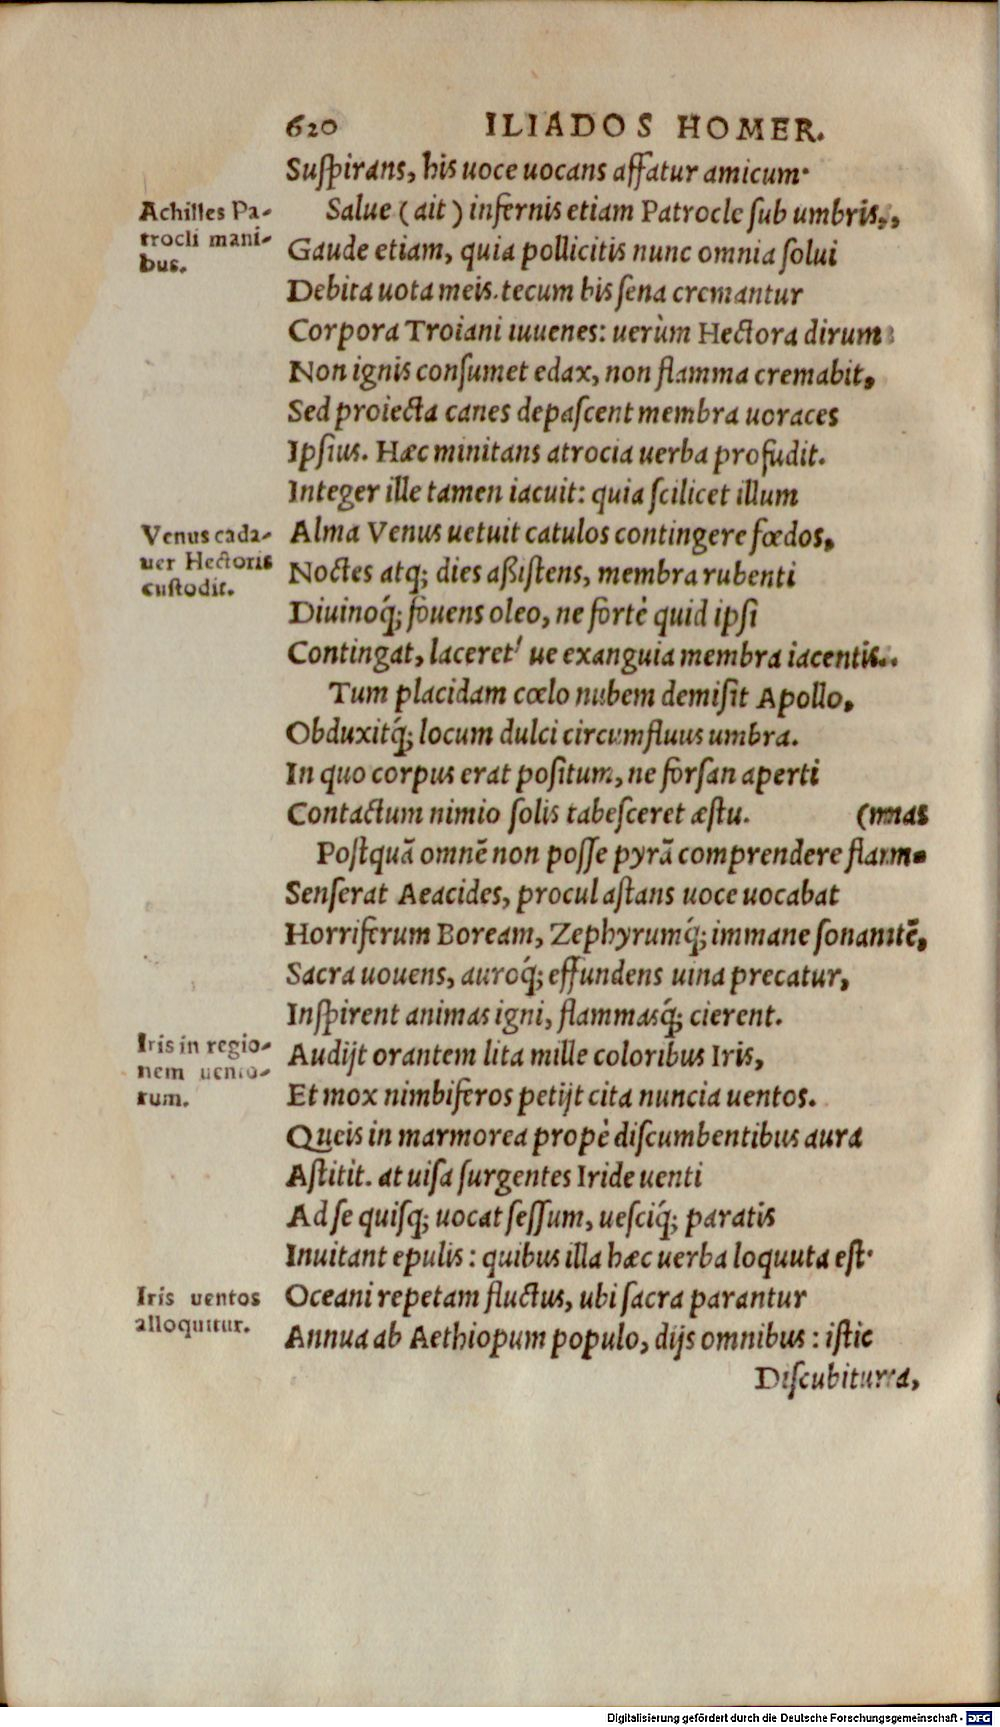 620 ILIADOS HOMER.
Suſpirans, his uoce uocans affatur amicum.
Achilles Pa-
trocli mani-
bus.
Salue (ait) infernis etiam Patrocle ſub umbris,
Gaude etiam, quia pollicitis nunc omnia ſolui
Debita uota meis. tecum bis ſena cremantur
Corpora Troiani iuuenes: uerùm Hectora dirum
Non ignis conſumet edax, non flamma cremabit,
Sed proiecta canes depaſcent membra uoraces
Ipſius. Hæc minitans atrocia uerba profudit.
Integer ille tamen iacuit: quia ſcilicet illum
Venus cada-
uer Hectoris
cuſtodit.
Alma Venus uetuit catulos contingere fœdos,
Noctes atq; dies aßiſtens, membra rubenti
Diuinoq́; fouens oleo, ne fortè quid ipſi
Contingat, laceret' ue exanguia membra iacentis.
Tum placidam cœlo nubem demiſit Apollo,
Obduxitq́; locum dulci circumfluus umbra.
In quo corpus erat poſitum, ne forſan aperti
Contactum nimio ſolis tabeſceret æſtu. (mas
Poſtquā omnē non poſſe pyrā comprendere flam-
Senſerat Aeacides, procul aſtans uoce uocabat
Horriferum Boream, Zephyrumq́; immane ſonantē,
Sacra uouens, auroq́; effundens uina precatur,
Inſpirent animas igni, flammasq́; cierent.
Iris in regio-
nem uento-
rum.
Audijt orantem lita mille coloribus Iris,
Et mox nimbiferos petijt cita nuncia uentos.
Queis in marmorea propè diſcumbentibus aura
Aſtitit. at uiſa ſurgentes Iride uenti
Ad ſe quiſq; uocat ſeſſum, ueſciq́; paratis
Inuitant epulis: quibus illa hæc uerba loquuta eſt.
Iris uentos
alloquitur.
Oceani repetam fluctus, ubi ſacra parantur
Annua ab Aethiopum populo, dijs omnibus: iſtic
Diſcubitura,
Digitalisierung gefördert durch die Deutsche Forschungsgemeinschaft - DFG